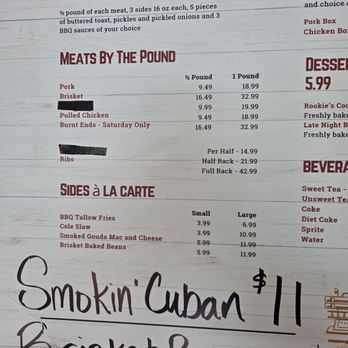 ½ pound of each meat, 3 sides 16 oz each, 5 pieces
of buttered toast, pickles and pickled onions and 3
BBQ sauces of your choice
MEATS BY THE POUND
½ Pound 1 Pound
Pork 9.49 18.99
Brisket 16.49 32.99
9.99 19.99
Pulled Chicken 9.49 18.99
Burnt Ends - Saturday Only 16.49 32.99
Per Half - 14.99
Ribs Half Rack - 21.99
Full Rack - 42.99
SIDES à LA CARTE
Small Large
BBQ Tallow Fries 3.99 6.99
Cole Slaw 3.99 10.99
Smoked Gouda Mac and Cheese 5.99 11.99
Brisket Baked Beans 5.99 11.99
Smokin' Cuban $11
Brisket
and choice
Pork Box
Chicken Bo
DESSE
5.99
Rookie's Coo
Freshly bake
Late Night B
Freshly bake
BEVERA
Sweet Tea -
Unsweet Tea
Coke
Diet Coke
Sprite
Water